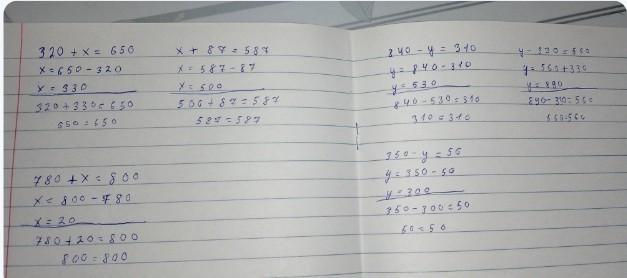 320 + x = 650
x = 650 - 320
x = 330
320 + 330 = 650
650 = 650
x + 87 = 587
x = 587 - 87
x = 500
500 + 87 = 587
587 = 587
780 + x = 800
x = 800 - 780
x = 20
780 + 20 = 800
800 = 800
840 - y = 310
y = 840 - 310
y = 530
840 - 530 = 310
310 = 310
y - 330 = 560
y = 560 + 330
y = 890
890 - 330 = 560
560 = 560
350 - y = 50
y = 350 - 50
y = 300
350 - 300 = 50
50 = 50